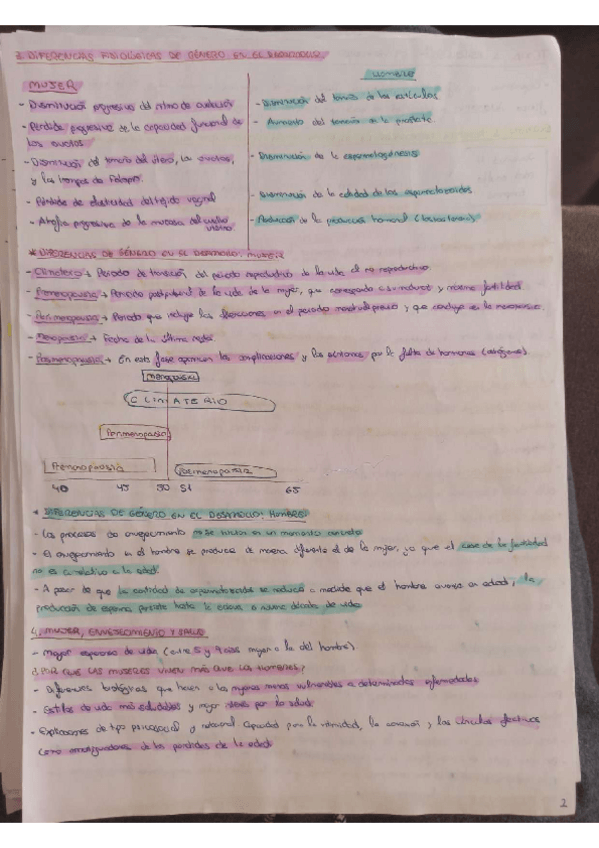 3. DIFERENCIAS FISIOLÓGICAS DE GÉNERO EN EL DESARROLLO
MUJER
- Disminución progresiva del ritmo de ovulación
- Pérdida progresiva de la capacidad funcional de
los ovarios
- Disminución del tamaño del útero, los ovarios,
y las trompas de Falopio
- Pérdida de elasticidad del tejido vaginal
- Atrofia progresiva de la mucosa del cuello
uterino
HOMBRE
- Disminución del tamaño de los testículos
- Aumento del tamaño de la próstata
- Disminución de la espermatogénesis
- Disminución de la calidad de los espermatozoides
- Reducción de la producción hormonal (testosterona)
* DIFERENCIAS DE GÉNERO EN EL DESARROLLO: MUJER
- Climaterio → Periodo de transición del periodo reproductivo de la vida al no reproductivo.
- Premenopausia → Periodo de la vida de la mujer, que corresponde a su madurez y máxima fertilidad
- Perimenopausia → Periodo que incluye las alteraciones en el periodo menstrual previo y que concluye en la menopausia.
- Menopausia → Fecha de la última regla
- Posmenopausia → En esta fase aparecen las complicaciones y los síntomas por la falta de hormonas (estrógenos).
MENOPAUSIA
CLIMATERIO
Perimenopausia
Premenopausia
Posmenopausia
40 45 50 51 65
* DIFERENCIAS DE GÉNERO EN EL DESARROLLO: HOMBRE
- Los procesos de envejecimiento no se inician en un momento concreto
- El envejecimiento en el hombre se produce de manera diferente al de la mujer, ya que el cese de la fertilidad
no es correlativo a la edad.
- A pesar de que la cantidad de espermatozoides se reduce a medida que el hombre avanza en edad, la
producción de esperma persiste hasta la octava o novena década de vida
4. MUJER, ENVEJECIMIENTO Y SALUD
- Mayor esperanza de vida (entre 5 y 9 años mayor a la del hombre).
¿POR QUÉ LAS MUJERES VIVEN MÁS QUE LOS HOMBRES?
- Diferencias biológicas que hacen a las mujeres menos vulnerables a determinadas enfermedades
- Estilos de vida más saludables y mayor interés por la salud
- Explicaciones de tipo psicosocial y relacional. Capacidad para la intimidad, la conexión y los círculos afectivos
como amortiguadores de las pérdidas de la edad.
2